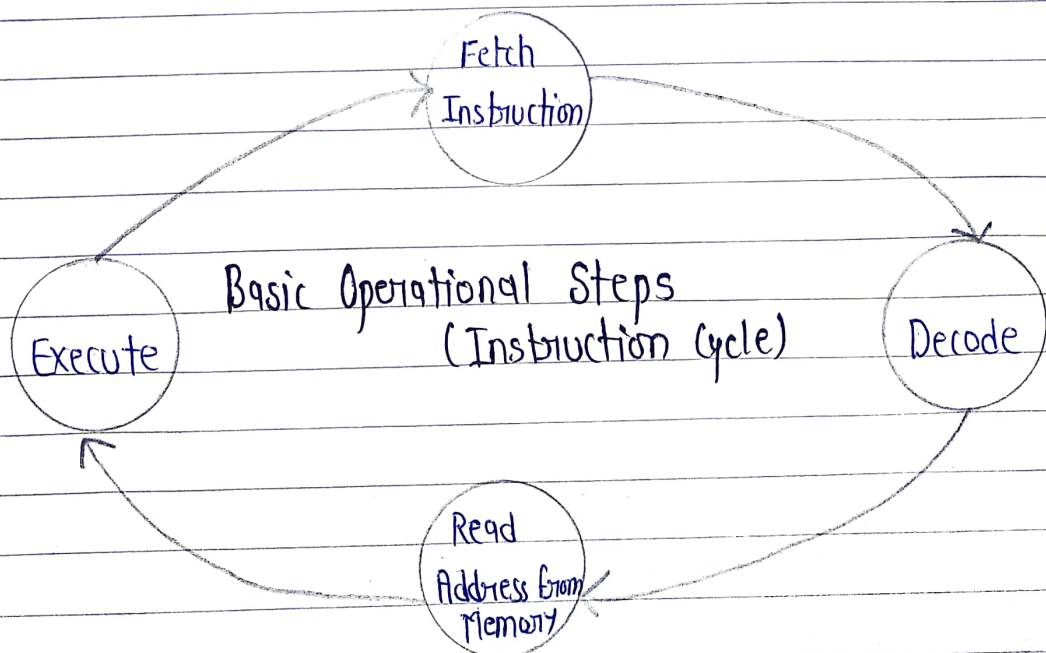 Fetch
Instruction
Basic Operational Steps
(Instruction Cycle)
Execute
Decode
Read
Address from
Memory